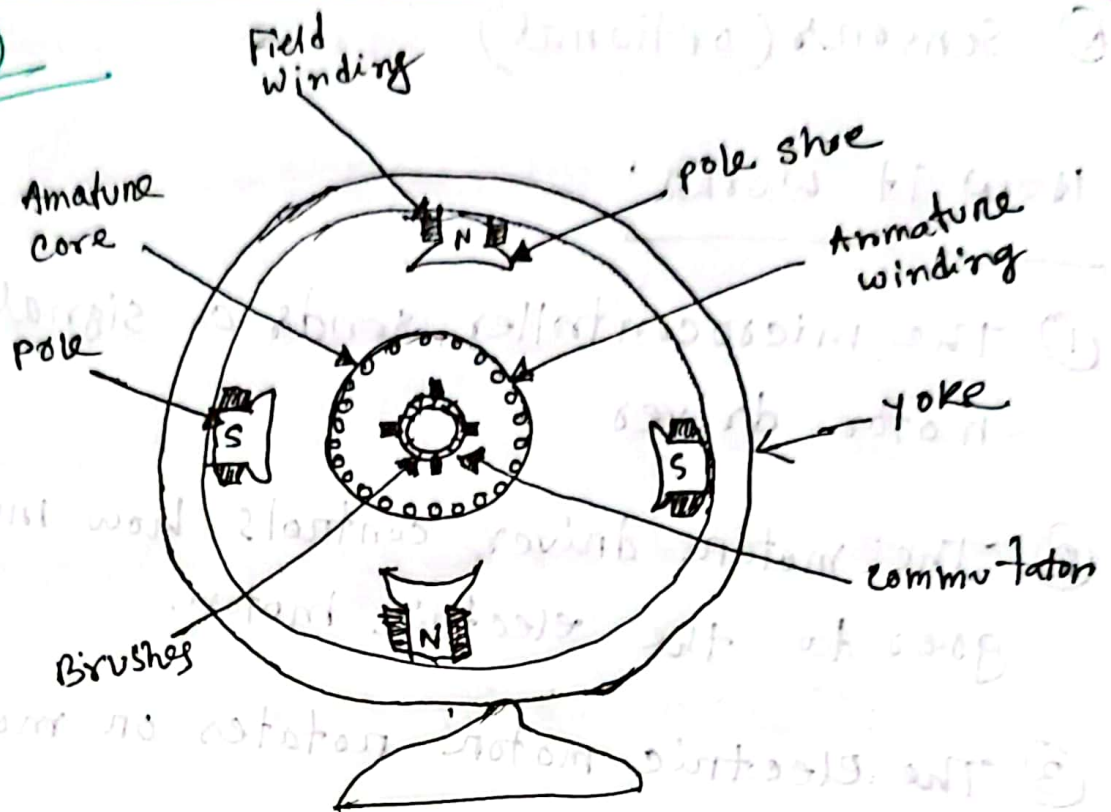 Field
winding
pole shoe
Amature
core
Anmature
winding
N
pole
S
S
yoke
commutator
N
Brushes